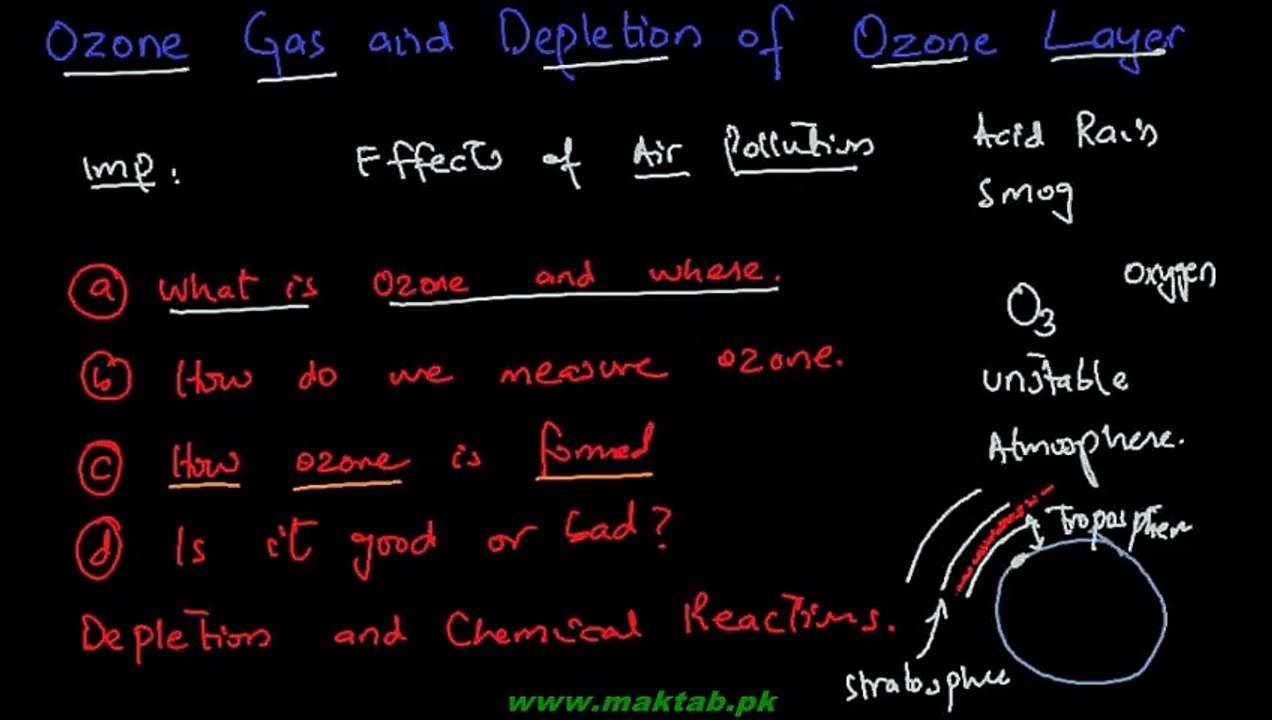 Ozone Gas and Depletion of Ozone Layer
Imp: Effects of Air Pollution
Acid Rain
Smog
(a) What is Ozone and where.
(b) How do we measure ozone.
(c) How ozone is formed
(d) Is it good or bad?
Depletion and Chemical Reactions.
Oxygen
O3
unstable
Atmosphere.
Troposphere
Stratosphere
www.maktab.pk